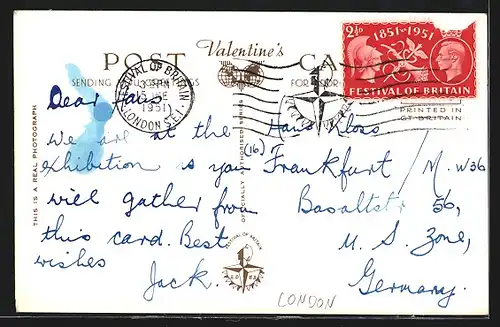 POST
Valentine's
CA
SENDING
FESTIVAL OF BRITAIN
LONDON S.E.1
1951
2½D
1851-1951
FESTIVAL OF BRITAIN
PRINTED IN
GT BRITAIN
THIS IS A REAL PHOTOGRAPH
Dear Hans
We are at the
exhibition as you
will gather from
this card. Best
wishes
Jack.
Hans Kloss
(16) Frankfurt / M. W36
Basaltstr 56,
U. S. Zone,
Germany.
FESTIVAL OF BRITAIN
LONDON